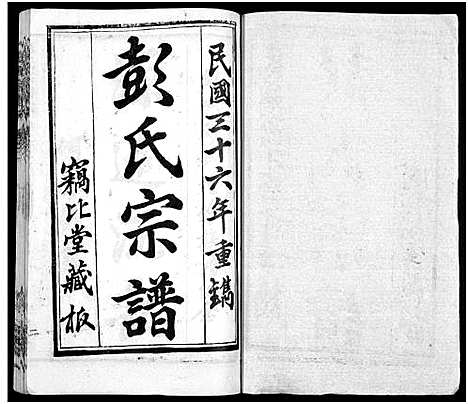 民國三十六年重鐫
彭氏宗譜
竊比堂藏板